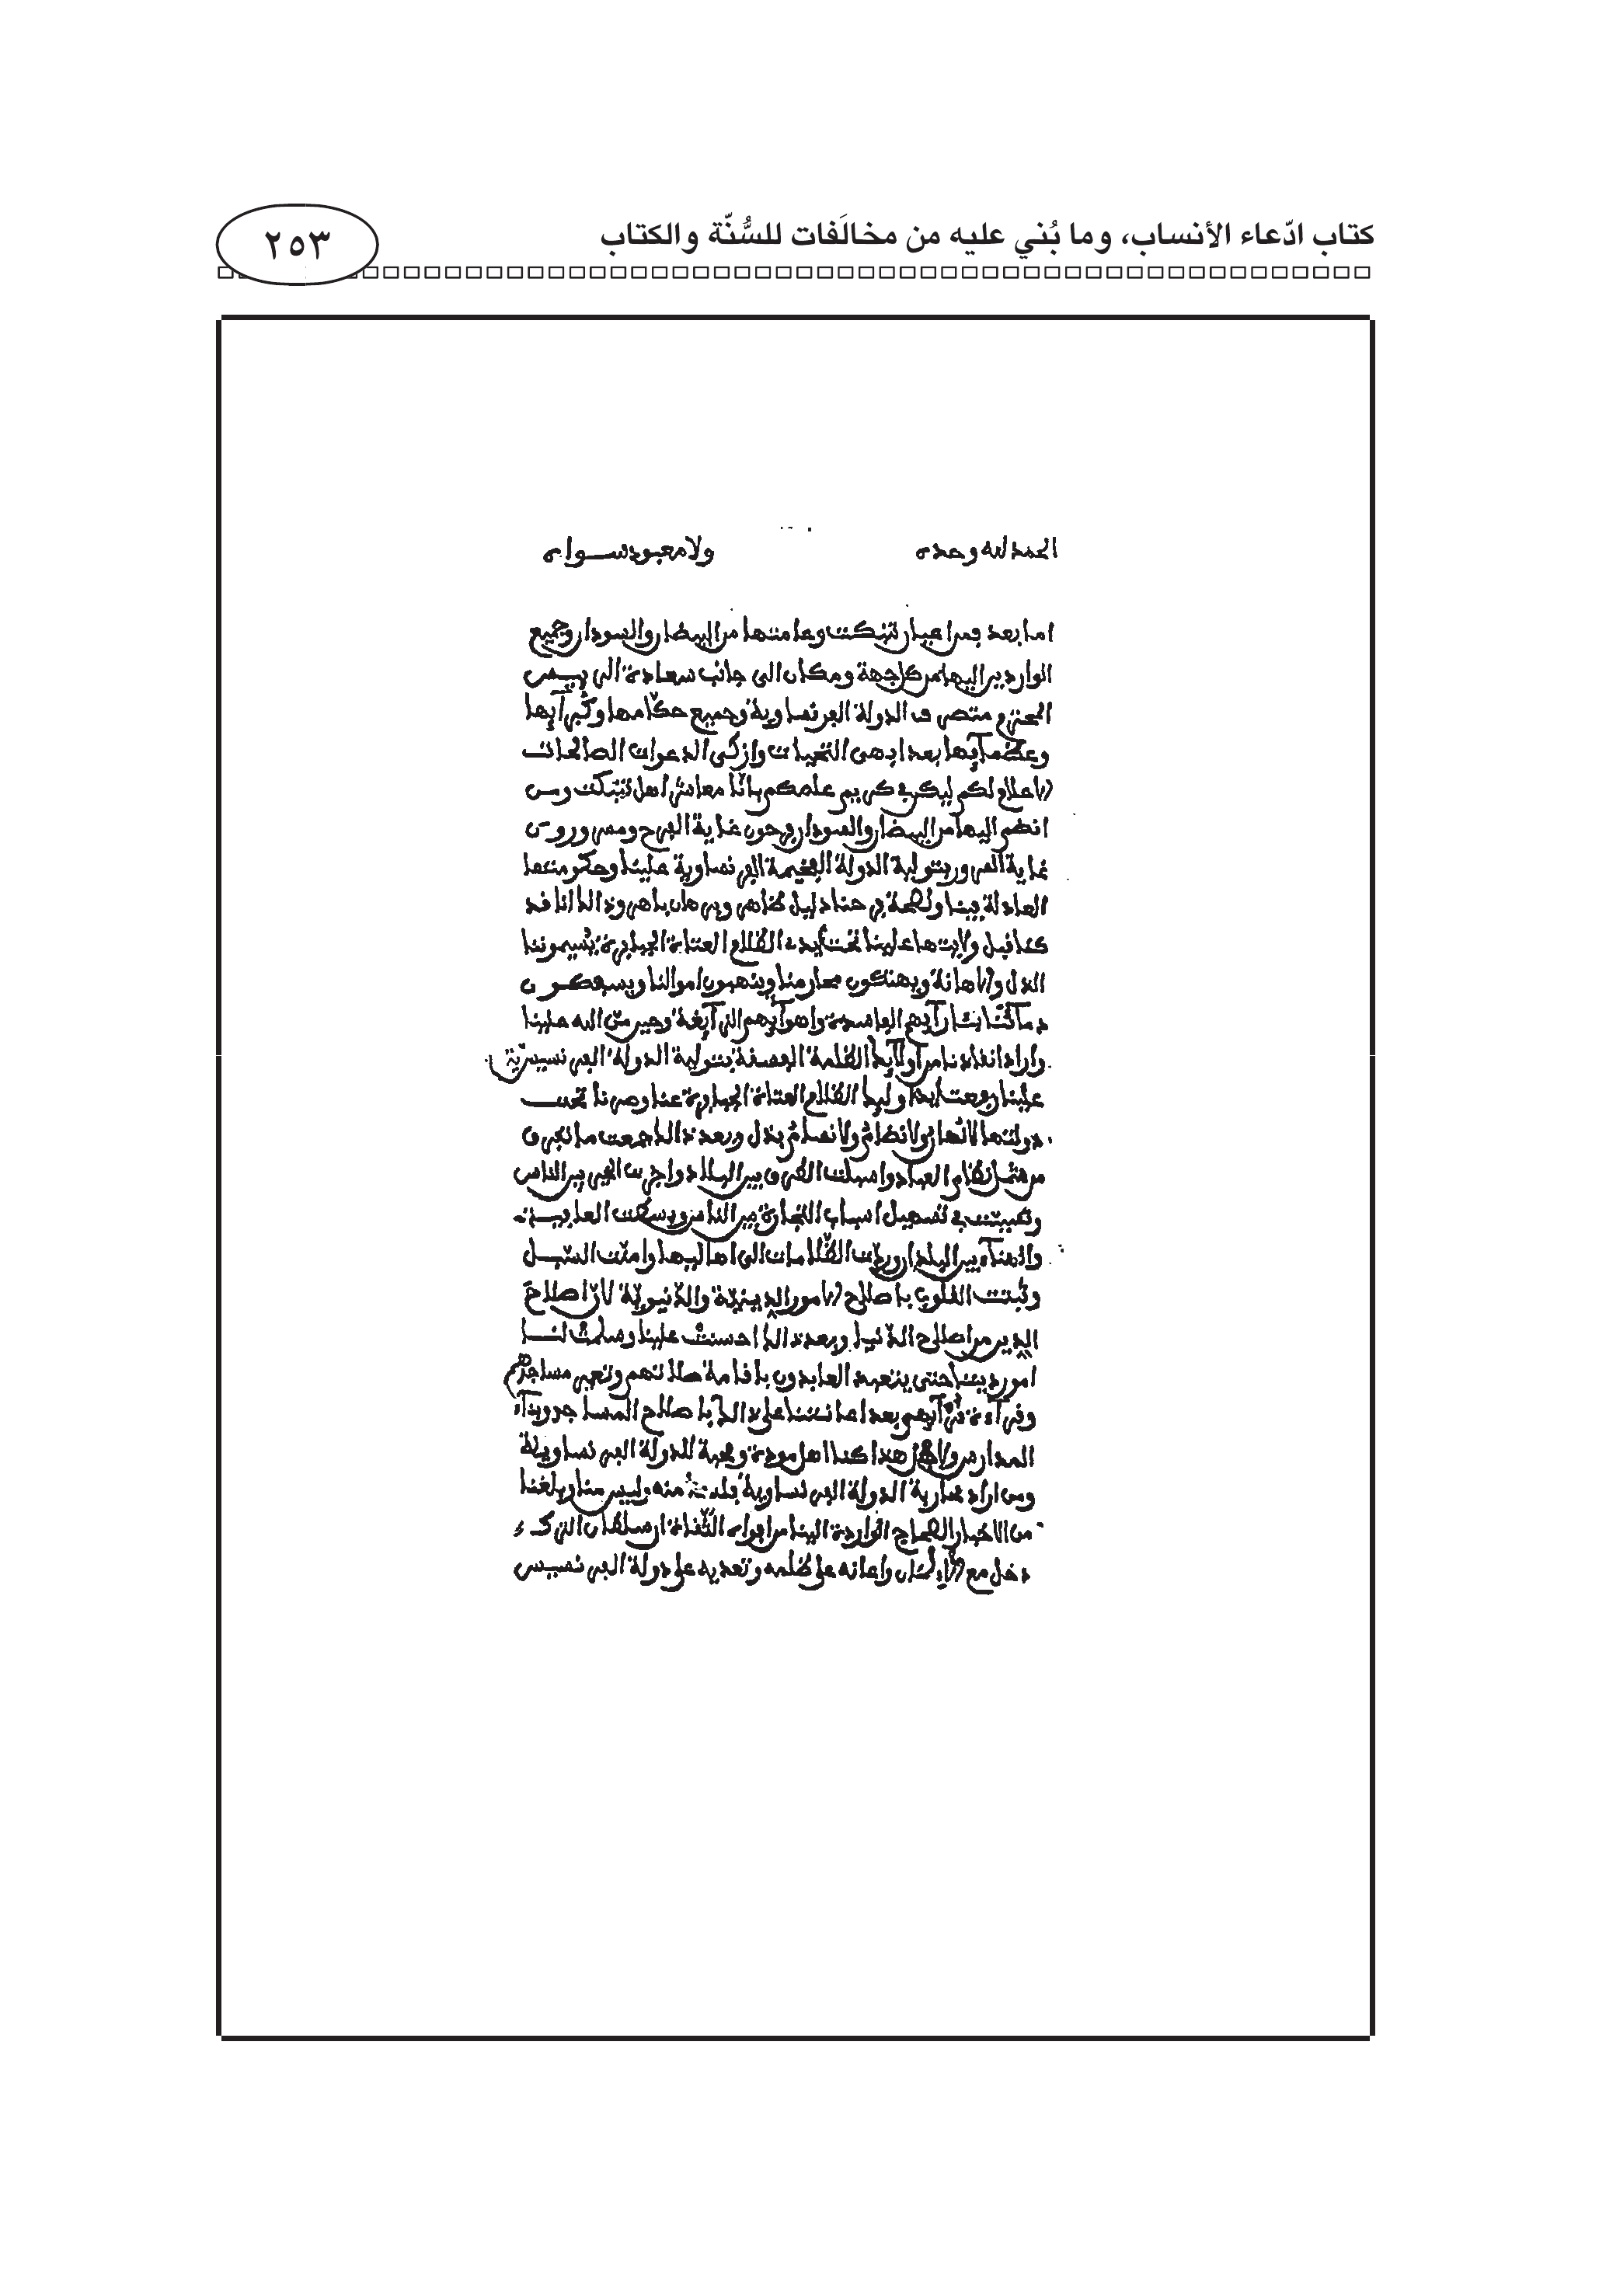 كتاب ادّعاء الأنساب، وما بُني عليه من مخالَفات للسُّنّة والكتاب
٢٥٣
الحمد لله وحده ولا معبود سواه
اما بعد فمن اعيان تنبكت وعامتها من البيضان والسودان وجميع
الواردين اليها من كل جهة ومكان الى جانب سعادة الى
المحترم الدولة الفرنساوية وجميع حكّامها وكبرآيها
وعظمآيها بعد ابهى التحيات وازكى الدعوات الصالحات
الاعلام لكم ليكن في كريم علمكم بانّا معاشر اهل تنبكت ومن
انضم اليها من البيضان والسودان فرحون غاية الفرح ومسرورون
غاية السرور بتولية الدولة الفخيمة الفرنساوية علينا وحكومتها
العادلة فينا دليل ظاهر وبرهان باهر وذالك انا قد
كنا قبل ولايتها علينا تحت ايدي الظلام العتاة الجبابرة يسيموننا
الذل والاهانة ويهتكون محارمنا وينهبون اموالنا ويسفكون
دمآئنا بئارآيهم الفاسدة واهوآيهم الزآيغة وحين منّ الله علينا
واراد انقاذنا من اولآيك الظلمة الفسقة بتولية الدولة الفرنسيسيّة
علينا رفعت ايدي اوليك الظلام العتاة الجبابرة عنا وصرنا تحت
دولتها لا نُهان ولا نظام ولا نسام بذل وبعد ذالك جمعت ما تفرق
من شمل نظام العباد وامنت الطرق بين البلاد واجرت الخير بين الناس
وتسببت في تسهيل اسباب التجارة بين الناس وبسطت العافية
والهنآء بين البلدان وردّت الظّلامات الى اهاليها وامنّت السّبل
وثبتت القلوب باصلاح الامور الدينيّة والدّنيويّة لانّ اصلاح
الدين من اصلاح الدّنيا وبعد ذالك احسنت علينا وسلمت لنا
امور ديننا حتى يتعبد العابدون باقامة صلاتهم وتعمير مساجدهم
وقرآءة قرآنهم بعد اعانتنا على ذالك باصلاح المساجد وبنآء
المدارس ولاجل هذا كنا اهل مودة ومحبة للدولة الفرنساوية
ومن اراد محاربة الدولة الفرنساوية منه وليس منا وبلغنا
من الاخبار الصحاح الواردة الينا من افواه الثّقاة ان سلطان الترك
دخل مع واعانه على ظلمه وتعديه على دولة الفرنسيس